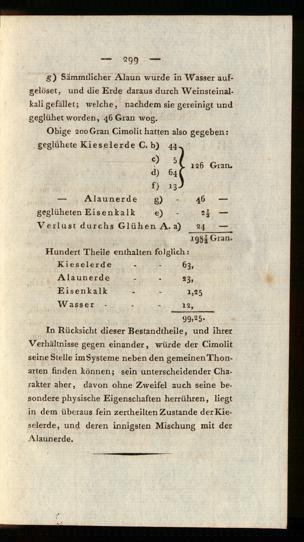 — 299 —
g) Sämmtlicher Alaun wurde in Wasser auf-
gelöset, und die Erde daraus durch Weinsteinal-
kali gefället; welche, nachdem sie gereinigt und
geglühet worden, 46 Gran wog.
Obige 200 Gran Cimolit hatten also gegeben:
geglühete Kieselerde C. b) 44
c) 5
d) 64 } 126 Gran.
f) 13
— Alaunerde g) - 46 —
geglüheten Eisenkalk e) - 2½ —
Verlust durchs Glühen A. a) 24 —
198½ Gran.
Hundert Theile enthalten folglich:
Kieselerde - - 63,
Alaunerde - - 23,
Eisenkalk - - 1,25
Wasser - - - 12,
99,25.
In Rücksicht dieser Bestandtheile, und ihrer
Verhältnisse gegen einander, würde der Cimolit
seine Stelle im Systeme neben den gemeinen Thon-
arten finden können; sein unterscheidender Cha-
rakter aber, davon ohne Zweifel auch seine be-
sondere physische Eigenschaften herrühren, liegt
in dem überaus fein zertheilten Zustande der Kie-
selerde, und deren innigsten Mischung mit der
Alaunerde.